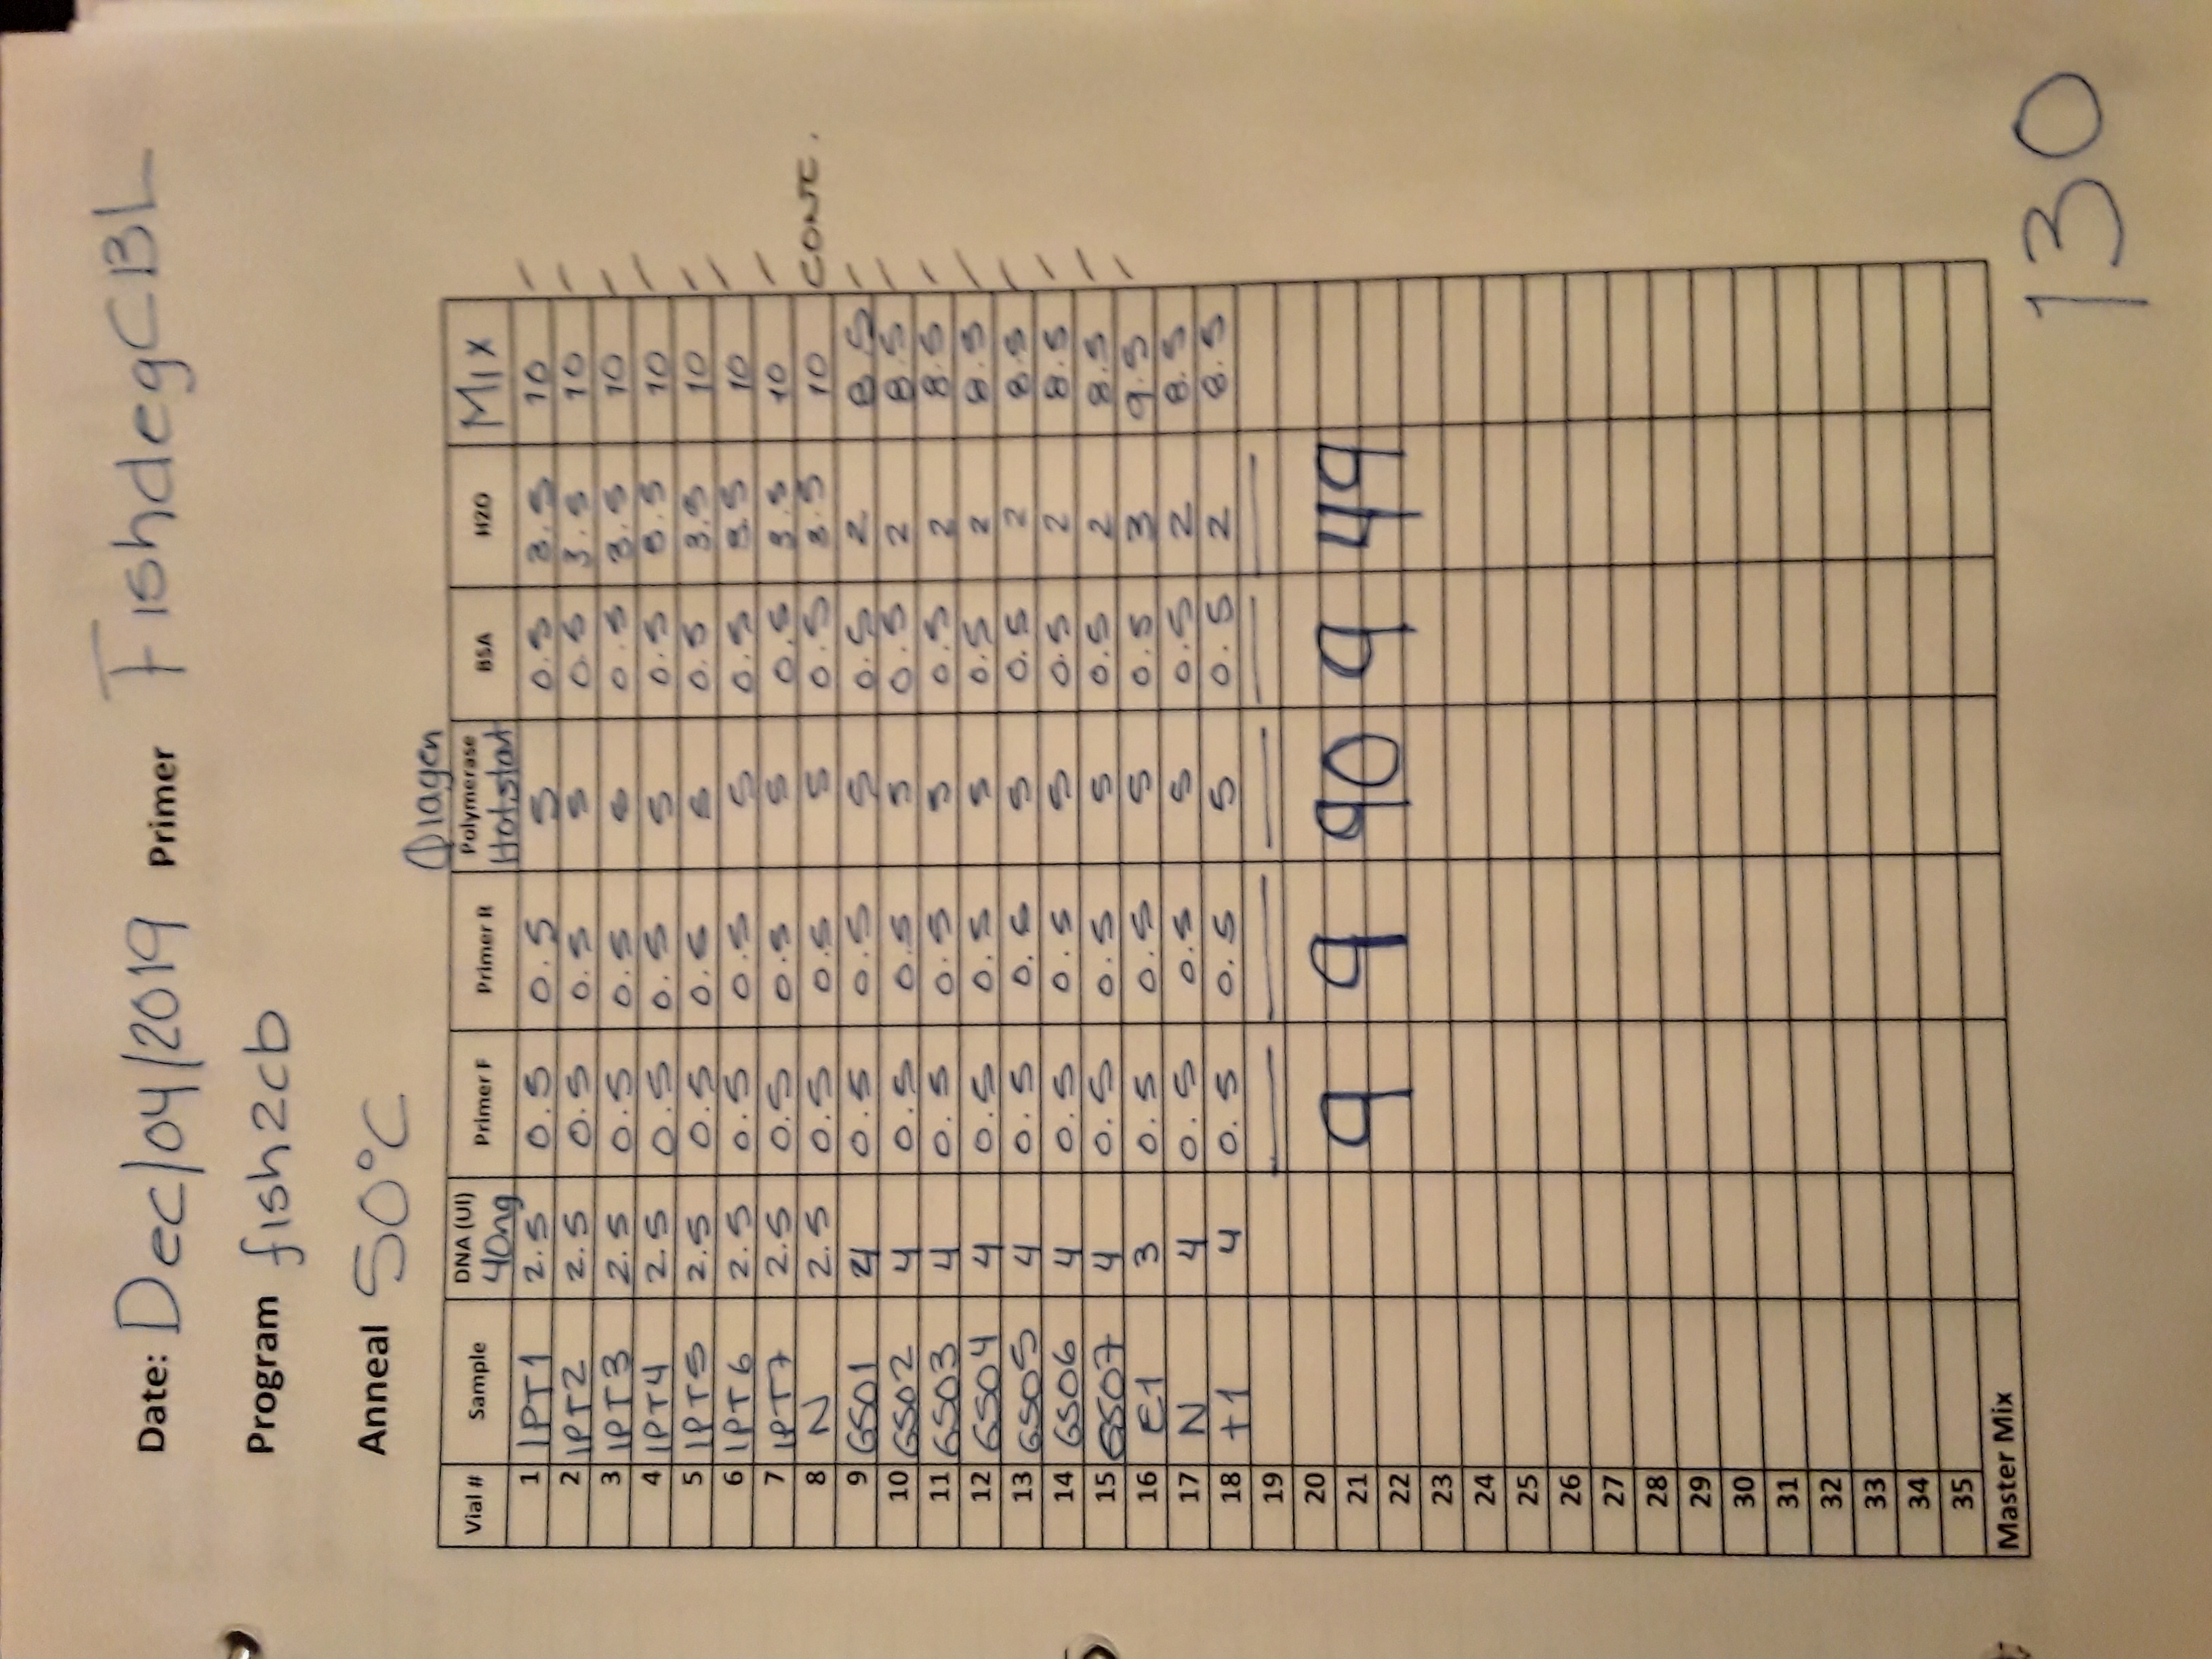 Date: Dec/04/2019 Primer FishdegCBL
Program fish2cb
Anneal 50°C
Qiagen
Vial # Sample DNA (Ul) 40ng Primer F Primer R Polymerase Hotstart BSA H2O Mix
1 IPT1 2.5 0.5 0.5 5 0.5 3.5 10
2 IPT2 2.5 0.5 0.5 5 0.5 3.5 10
3 IPT3 2.5 0.5 0.5 5 0.5 3.5 10
4 IPT4 2.5 0.5 0.5 5 0.5 3.5 10
5 IPT5 2.5 0.5 0.5 5 0.5 3.5 10
6 IPT6 2.5 0.5 0.5 5 0.5 3.5 10
7 IPT7 2.5 0.5 0.5 5 0.5 3.5 10
8 N 2.5 0.5 0.5 5 0.5 3.5 10
9 GS01 4 0.5 0.5 5 0.5 2 8.5
10 GS02 4 0.5 0.5 5 0.5 2 8.5
11 GS03 4 0.5 0.5 5 0.5 2 8.5
12 GS04 4 0.5 0.5 5 0.5 2 8.5
13 GS05 4 0.5 0.5 5 0.5 2 8.5
14 GS06 4 0.5 0.5 5 0.5 2 8.5
15 GS07 4 0.5 0.5 5 0.5 2 8.5
16 E1 3 0.5 0.5 5 0.5 3 9.5
17 N 4 0.5 0.5 5 0.5 2 8.5
18 +1 4 0.5 0.5 5 0.5 2 8.5
19
20
21 9 9 90 9 49
22
23
24
25
26
27
28
29
30
31
32
33
34
35
Master Mix
130